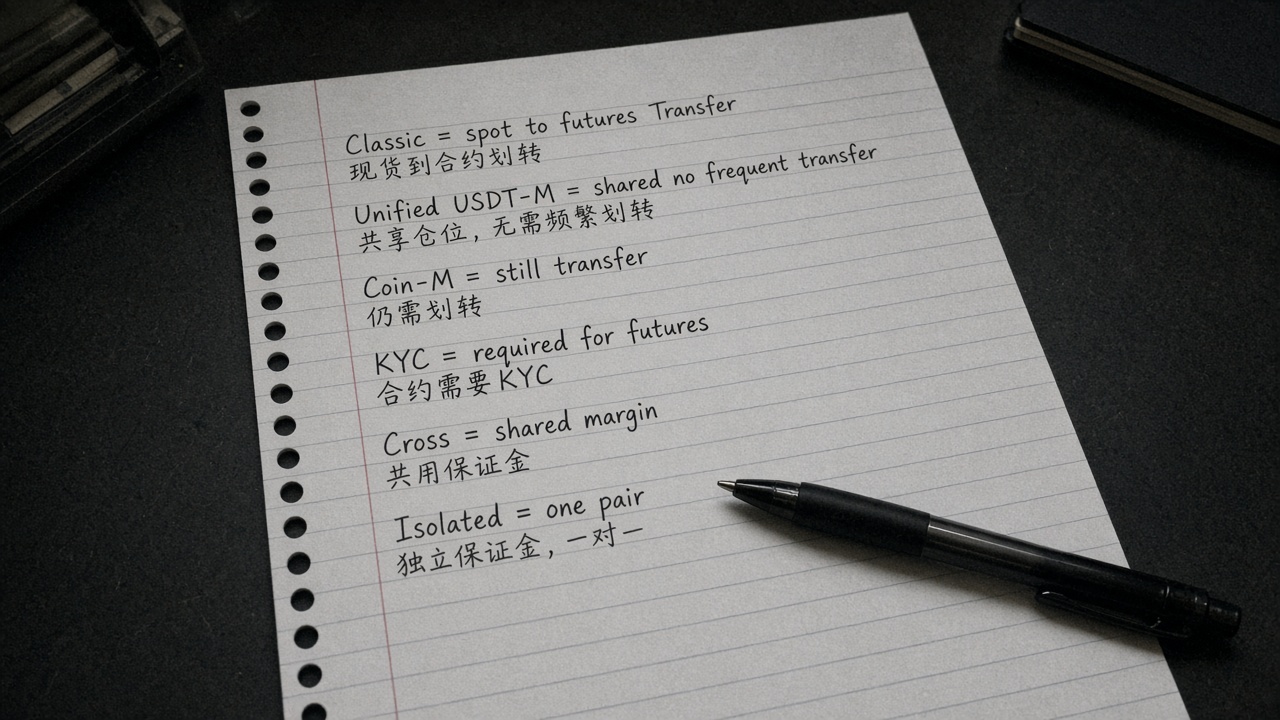 Classic = spot to futures Transfer
现货到合约划转
Unified USDT-M = shared no frequent transfer
共享仓位，无需频繁划转
Coin-M = still transfer
仍需划转
KYC = required for futures
合约需要 KYC
Cross = shared margin
共用保证金
Isolated = one pair
独立保证金，一对一